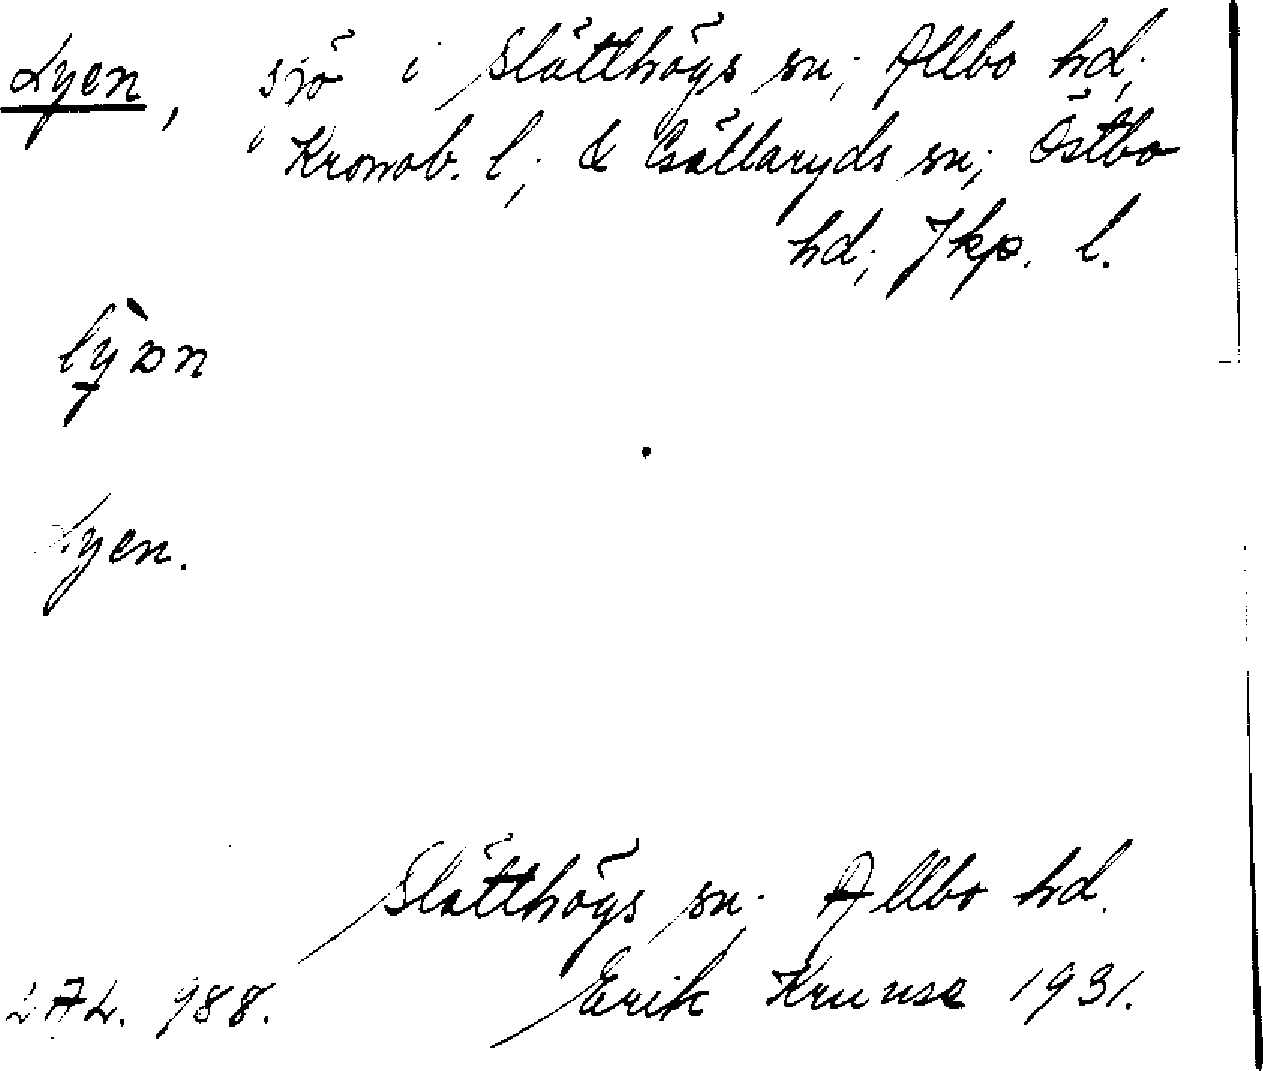 Lyen, sjö i Slätthögs sn; Allbo hd;
Kronob. l; & Gällaryds sn; Östbo
hd; Jkp. l.
Lyen.
Slätthögs sn. Allbo hd.
LAL. 988. Erik Kruuse 1931.